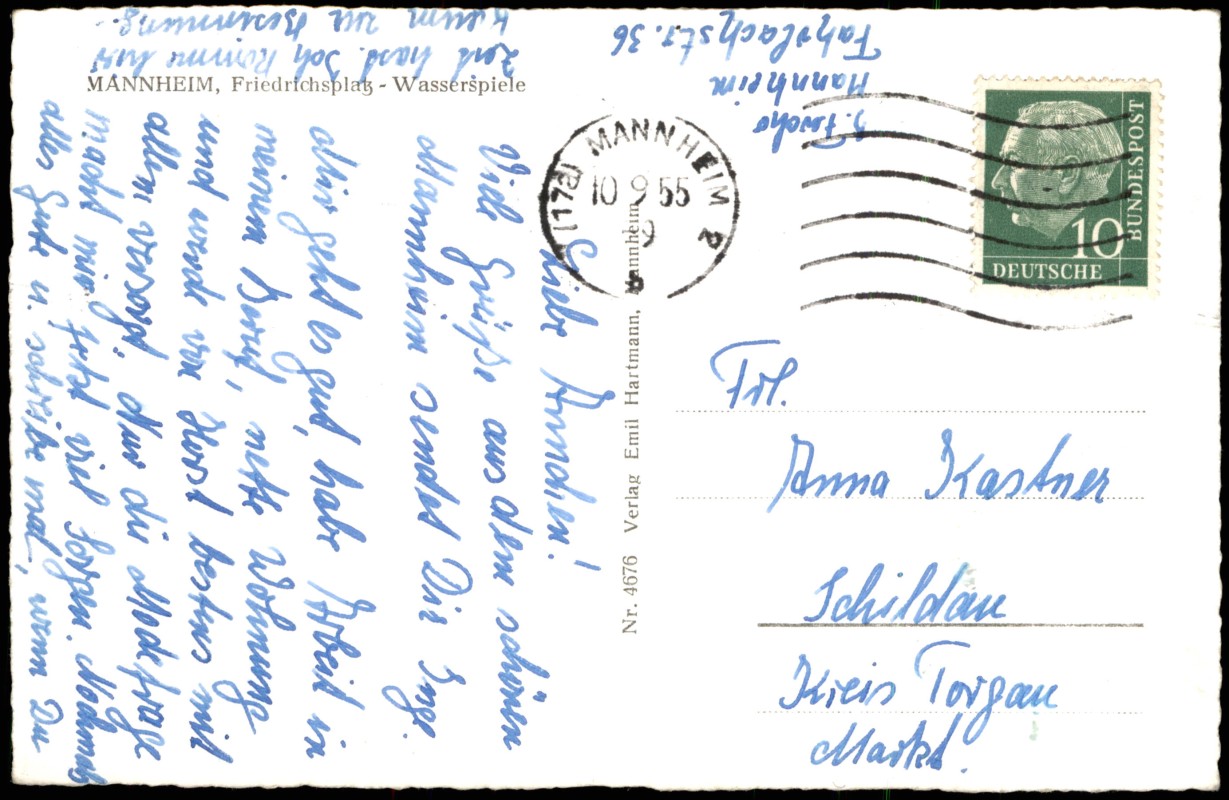 MANNHEIM, Friedrichsplatz - Wasserspiele
Liebe Annchen!
Viele Grüße aus dem schönen
Mannheim sendet Dir Inge.
Mir geht es gut, habe Arbeit in
meinem Beruf, nette Wohnung
und werde von Horst bestens mit
allem versorgt. Nur die Modefrage
macht mir jetzt viel Sorgen. Nochmals
alles Gute u. schreibe mal, wenn Du
Zeit hast. Ich komme hier
kaum zur Besinnung.
Mannheim
Fahrlachstr. 36
(17a) MANNHEIM 2
10 9 55
9
b
DEUTSCHE BUNDESPOST
10
Nr. 4676 Verlag Emil Hartmann, Mannheim
Frl.
Anna Kastner
Schildau
Kreis Torgau
Markt.